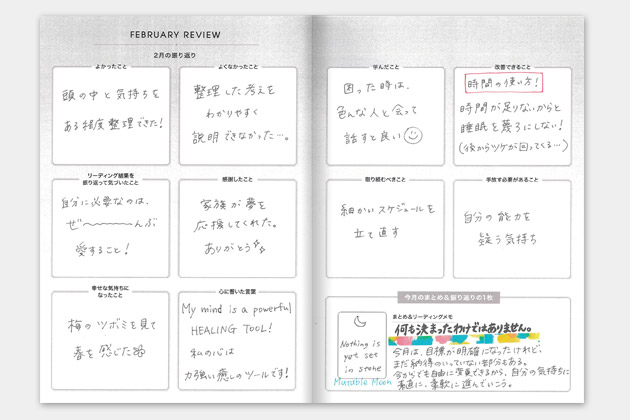 FEBRUARY REVIEW
2月の振り返り
よかったこと
頭の中と気持ちを
ある程度整理できた!
よくなかったこと
整理した考えを
わかりやすく
説明できなかった…。
リーディング結果を
振り返って気づいたこと
自分に必要なのは、
ぜ〜〜〜んぶ
愛すること!
感謝したこと
家族が夢を
応援してくれた。
ありがとう
幸せな気持ちに
なったこと
梅のツボミを見て
春を感じた
心に響いた言葉
My mind is a powerful
HEALING TOOL!
私の心は
力強い癒しのツールです!
学んだこと
困った時は、
色んな人と会って
話すと良い
改善できること
時間の使い方!
時間が足りないからと
睡眠を蔑ろにしない!
(後からツケが回ってくる…)
取り組むべきこと
細かいスケジュールを
立て直す
手放す必要があること
自分の能力を
疑う気持ち
今月のまとめ&振り返りの1枚
Nothing is
yet set
in stone
Mutable Moon
まとめ&リーディングメモ
何も決まったわけではありません。
今月は、目標が明確になったけれど、
まだ納得のいっていない部分もある。
今からでも自由に変更できるから、自分の気持ちに
素直に、柔軟に進んでいこう。